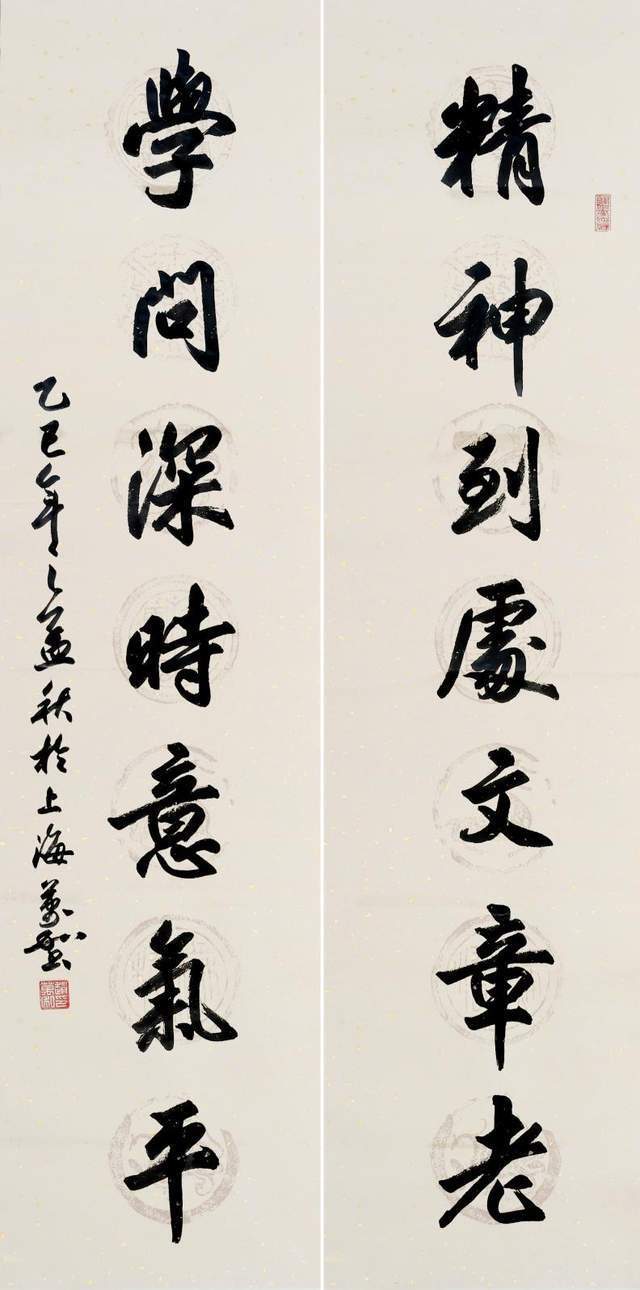 精神到處文章老
學問深時意氣平
乙巳年之孟秋於上海